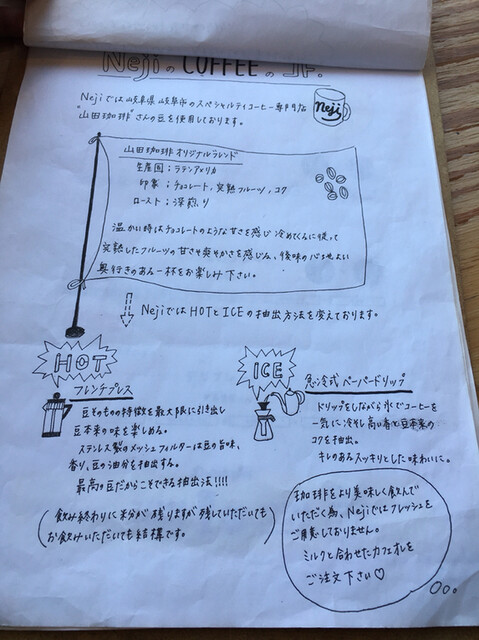 Nejiの COFFEE の コト。
Nejiでは岐阜県岐阜市のスペシャルティコーヒー専門店
山田珈琲さんの豆を使用しております。
Neji
山田珈琲オリジナルブレンド
生産国：ラテンアメリカ
印象：チョコレート、完熟フルーツ、コク
ロースト：深煎り
温かい時はチョコレートのような甘さを感じ 冷めてくるに従って
完熟したフルーツの甘さや爽やかさを感じる、後味の心地よい
奥行きのある一杯をお楽しみ下さい。
NejiではHOTとICEの抽出方法を変えております。
HOT
フレンチプレス
豆そのものの特徴を最大限に引き出し
豆本来の味を楽しめる。
ステンレス製のメッシュフィルターは豆の旨味、
香り、豆の油分を抽出する。
最高の豆だからこそできる抽出法!!!!
(飲み終わりに米分が残りますが残していただいても
お飲みいただいても結構です。)
ICE
急冷式ペーパードリップ
ドリップをしながら氷でコーヒーを
一気に冷やし高い香と豆本来の
コクを抽出。
キレのあるスッキリとした味わいに。
珈琲をより美味しく飲んで
いただく為、Nejiではフレッシュを
ご用意しておりません。
ミルクと合わせたカフェオレを
ご注文下さい♡